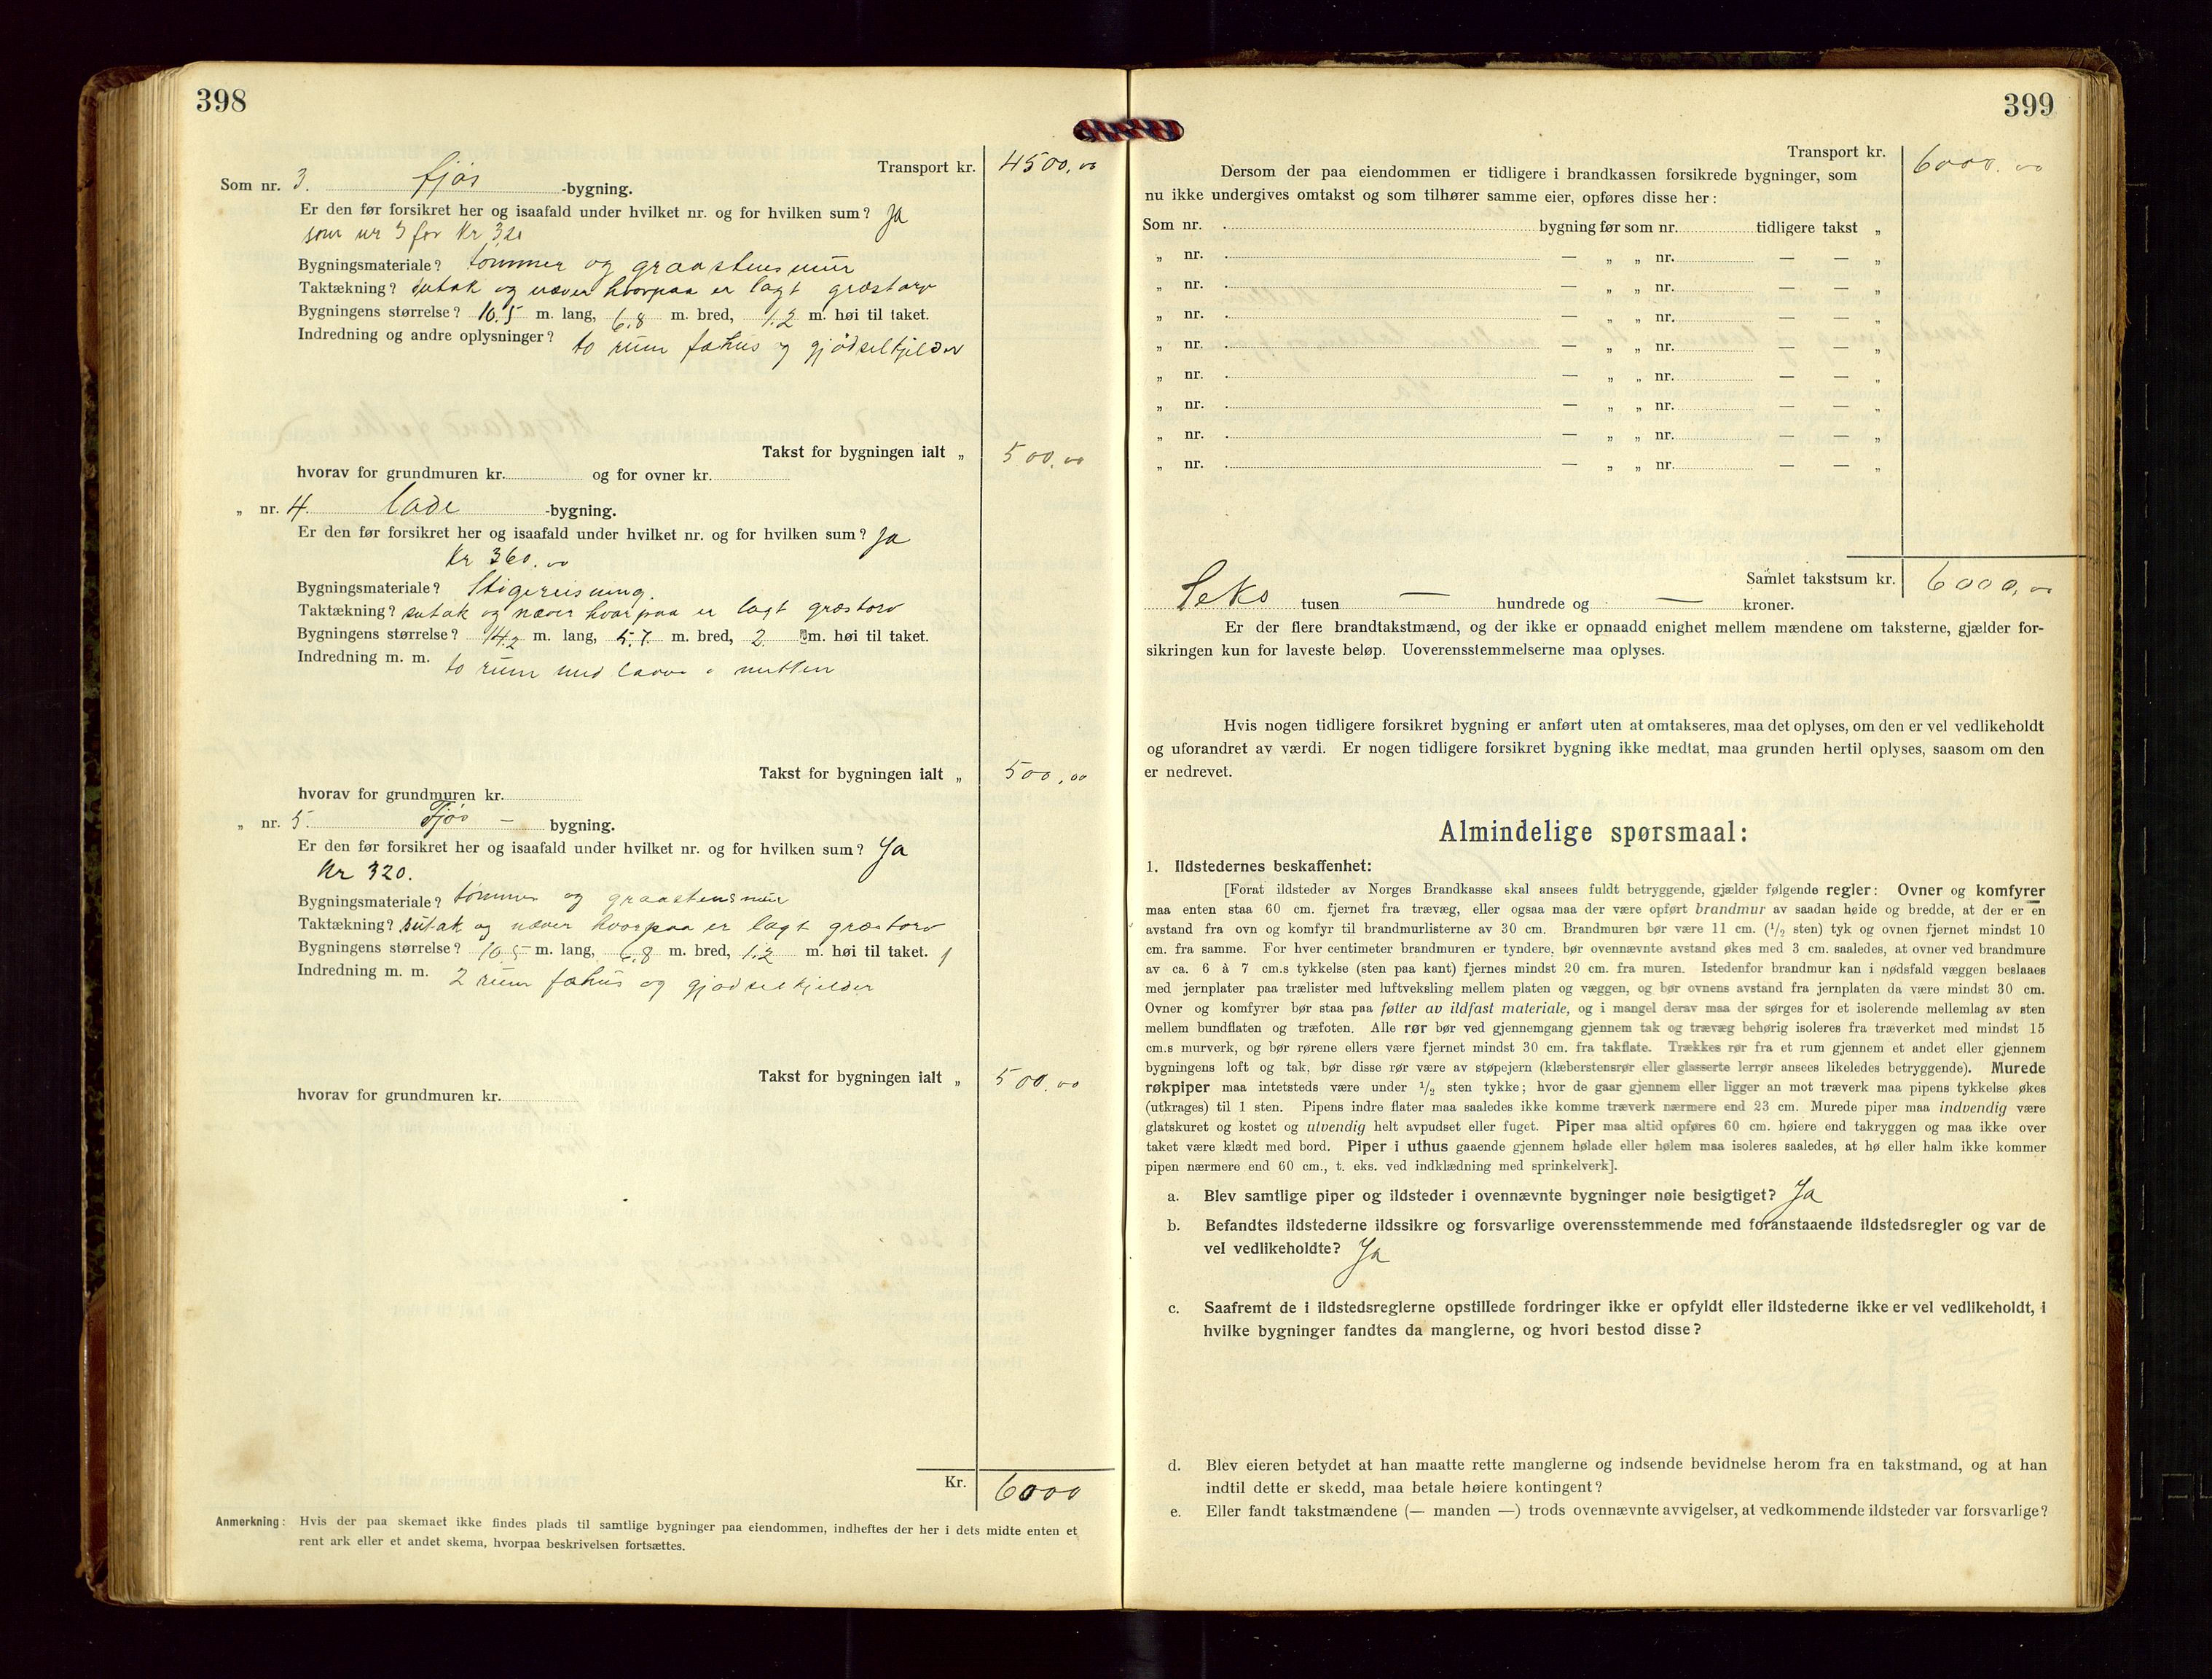 398
Transport kr. 4500,00
Som nr. 3. fjøs -bygning.
Er den før forsikret her og isaafald under hvilket nr. og for hvilken sum? Ja
som nr 3 for Kr 320
Bygningsmateriale? tømmer og graastensmur
Taktækning? sutak og næver hvorpaa er lagt græstorv
Bygningens størrelse? 10.5 m. lang, 6.8 m. bred, 1.2 m. høi til taket.
Indredning og andre oplysninger? to rum fæhus og gjødselkjelder
Takst for bygningen ialt „ 500,00
hvorav for grundmuren kr. og for ovner kr.
„ nr. 4. Lade -bygning.
Er den før forsikret her og isaafald under hvilket nr. og for hvilken sum? Ja
Kr 360.00
Bygningsmateriale? Stigereisning.
Taktækning? sutak og næver hvorpaa er lagt græstorv
Bygningens størrelse? 14.2 m. lang, 5.7. m. bred, 2. m. høi til taket.
Indredning m. m. to rum med laave i mitten
Takst for bygningen ialt „ 500,00
hvorav for grundmuren kr.
„ nr. 5. Fjøs - bygning.
Er den før forsikret her og isaafald under hvilket nr. og for hvilken sum? Ja
Kr 320.
Bygningsmateriale? tømmer og graastensmur
Taktækning? sutak og næver hvorpaa er lagt græstorv
Bygningens størrelse? 10.5 m. lang, 6.8 m. bred, 1.2 m. høi til taket.
Indredning m. m. 2 rum fæhus og gjødselkjelder
Takst for bygningen ialt „ 500.00
hvorav for grundmuren kr.
Kr. 6000
Anmerkning: Hvis der paa skemaet ikke findes plads til samtlige bygninger paa eiendommen, indheftes der her i dets midte enten et
rent ark eller et andet skema, hvorpaa beskrivelsen fortsættes.
399
Transport kr. 6000.00
Dersom der paa eiendommen er tidligere i brandkassen forsikrede bygninger, som
nu ikke undergives omtakst og som tilhører samme eier, opføres disse her:
Som nr. bygning før som nr. tidligere takst „
„ nr. — „ „ nr. — — „
„ nr. — „ „ nr. — — „
„ nr. — „ „ nr. — — „
„ nr. — „ „ nr. — — „
„ nr. — „ „ nr. — — „
„ nr. — „ „ nr. — — „
„ nr. — „ „ nr. — — „
„ nr. — „ „ nr. — — „
Samlet takstsum kr. 6000,00
Seks tusen — hundrede og — kroner.
Er der flere brandtakstmænd, og der ikke er opnaadd enighet mellem mændene om taksterne, gjælder for-
sikringen kun for laveste beløp. Uoverensstemmelserne maa oplyses.
Hvis nogen tidligere forsikret bygning er anført uten at omtakseres, maa det oplyses, om den er vel vedlikeholdt
og uforandret av værdi. Er nogen tidligere forsikret bygning ikke medtat, maa grunden hertil oplyses, saasom om den
er nedrevet.
Almindelige spørsmaal:
1. Ildstedernes beskaffenhet:
[Forat ildsteder av Norges Brandkasse skal ansees fuldt betryggende, gjælder følgende regler: Ovner og komfyrer
maa enten staa 60 cm. fjernet fra trævæg, eller ogsaa maa der være opført brandmur av saadan høide og bredde, at der er en
avstand fra ovn og komfyr til brandmurlisterne av 30 cm. Brandmuren bør være 11 cm. (1/2 sten) tyk og ovnen fjernet mindst 10
cm. fra samme. For hver centimeter brandmuren er tyndere, bør ovennævnte avstand økes med 3 cm. saaledes, at ovner ved brandmure
av ca. 6 à 7 cm.s tykkelse (sten paa kant) fjernes mindst 20 cm. fra muren. Istedenfor brandmur kan i nødsfald væggen beslaaes
med jernplater paa trælister med luftveksling mellem platen og væggen, og bør ovnens avstand fra jernplaten da være mindst 30 cm.
Ovner og komfyrer bør staa paa føtter av ildfast materiale, og i mangel derav maa der sørges for et isolerende mellemlag av sten
mellem bundflaten og træfoten. Alle rør bør ved gjennemgang gjennem tak og trævæg behørig isoleres fra træverket med mindst 15
cm.s murverk, og bør rørene ellers være fjernet mindst 30 cm. fra takflate. Trækkes rør fra et rum gjennem et andet eller gjennem
bygningens loft og tak, bør disse rør være av støpejern (klæberstensrør eller glasserte lerrør ansees likeledes betryggende). Murede
røkpiper maa intetsteds være under 1/2 sten tykke; hvor de gaar gjennem eller ligger an mot træverk maa pipens tykkelse økes
(utkrages) til 1 sten. Pipens indre flater maa saaledes ikke komme træverk nærmere end 23 cm. Murede piper maa indvendig være
glatskuret og kostet og utvendig helt avpudset eller fuget. Piper maa altid opføres 60 cm. høiere end takryggen og maa ikke over
taket være klædt med bord. Piper i uthus gaaende gjennem hølade eller hølem maa isoleres saaledes, at hø eller halm ikke kommer
pipen nærmere end 60 cm., t. eks. ved indklædning med sprinkelverk].
a. Blev samtlige piper og ildsteder i ovennævnte bygninger nøie besigtiget? Ja
b. Befandtes ildstederne ildssikre og forsvarlige overensstemmende med foranstaaende ildstedsregler og var de
vel vedlikeholdte? Ja
c. Saafremt de i ildstedsreglerne opstillede fordringer ikke er opfyldt eller ildstederne ikke er vel vedlikeholdt, i
hvilke bygninger fandtes da manglerne, og hvori bestod disse?
d. Blev eieren betydet at han maatte rette manglerne og indsende bevidnelse herom fra en takstmand, og at han
indtil dette er skedd, maa betale høiere kontingent?
e. Eller fandt takstmændene (— manden —) trods ovennævnte avvigelser, at vedkommende ildsteder var forsvarlige?